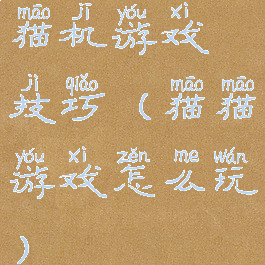 māo jī yóu xì
猫机游戏
jì qiǎo māo māo
技巧(猫猫
yóu xì zěn me wán
游戏怎么玩
)